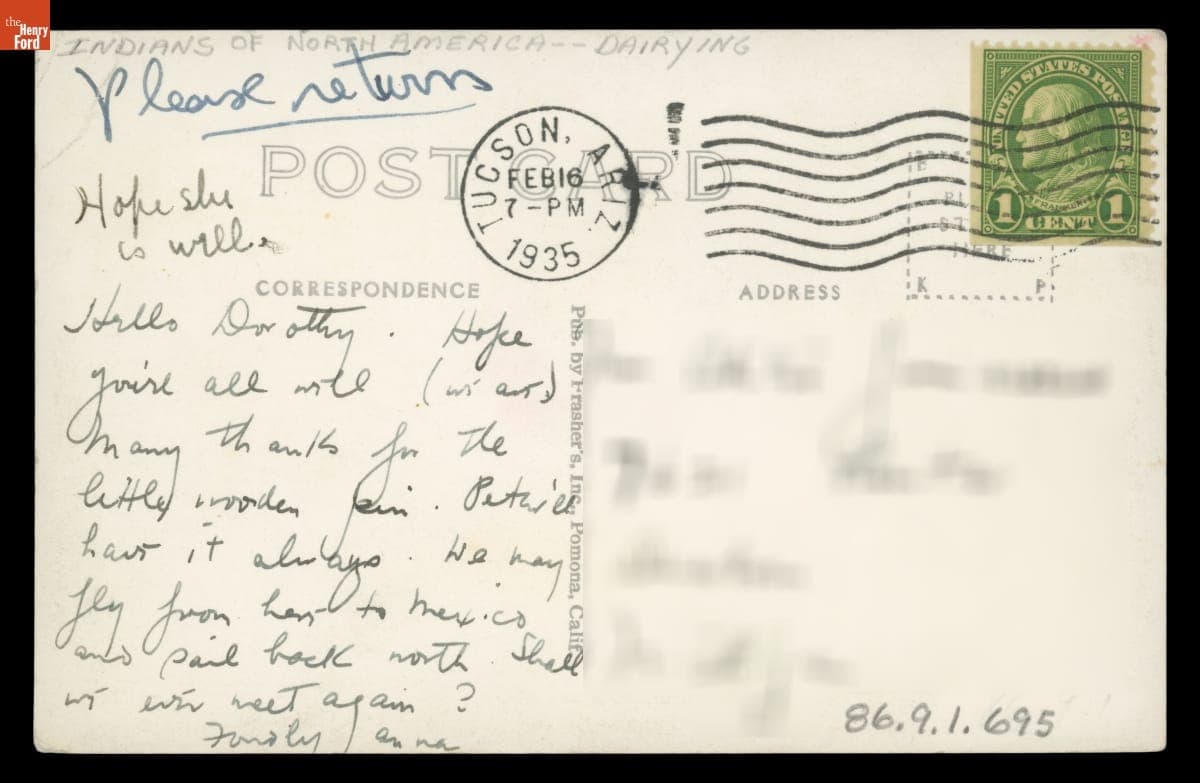 the
Henry
Ford
INDIANS OF NORTH AMERICA -- DAIRYING
Please return
POST CARD
TUCSON, ARIZ.
FEB 16
7-PM
1935
UNITED STATES POSTAGE
FRANKLIN
1 CENT 1
E
PL
ST
HERE
K P
Hope she
is well.
CORRESPONDENCE
ADDRESS
Hello Dorothy. Hope
you're all well (we are)
Many thanks for the
little wooden pin. Pete'll
have it always. We may
fly from here to Mexico
and sail back north. Shall
we ever meet again?
Fondly anna
Pub. by Frasher's, Inc., Pomona, Calif.
86.9.1.695